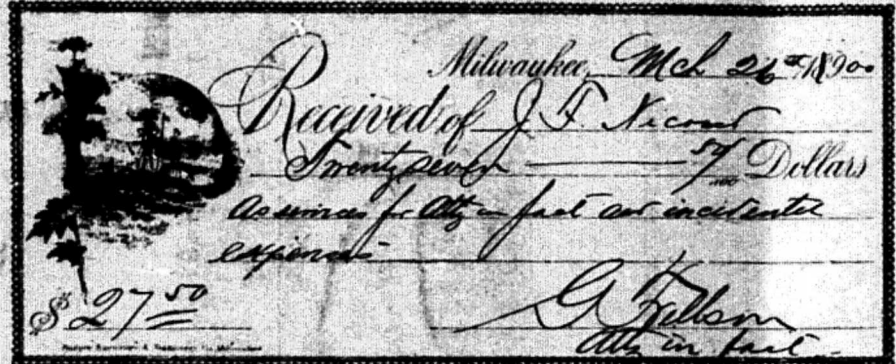 Milwaukee, Mch 26th 1890
Received of J. F.
Twenty seven 50/100 Dollars
As services for Atty in fact and incidental
expenses
$ 27 50
G
Atty in fact